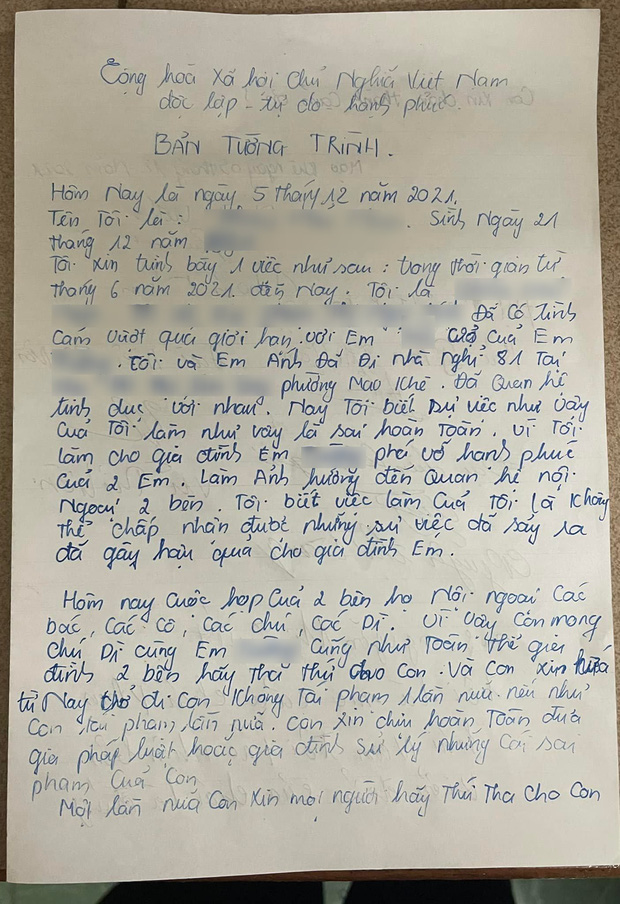 Cộng hoà xã hội chủ Nghĩa Việt Nam
độc lập - tự do - hạnh phúc.
BẢN TƯỜNG TRÌNH.
Hôm Nay là ngày 5 tháng 12 năm 2021.
Tên Tôi là : . Sinh Ngày 21
tháng 12 năm
Tôi xin trình bầy 1 việc như sau : trong thời gian từ
tháng 6 năm 2021. đến Nay. Tôi là
Đã Có tình
Cảm vượt quá giới hạn với Em Của Em
. Tôi và Em Ánh Đã Đi nhà nghỉ 81 Tại
phường Mạo Khê. Đã Quan hệ
tình dục với nhau. Nay Tôi biết sự việc như vậy
Của Tôi làm như vậy là sai hoàn Toàn. Vì Tôi
làm cho gia đình Em phá vỡ hạnh phúc
Của 2 Em. Làm Ảnh hưởng đến Quan hệ nội
Ngoại 2 bên. Tôi biết việc làm Của Tôi là không
thể chấp nhận được nhưng sự việc đã sảy ra
đã gây hậu quả cho gia đình Em.
Hôm nay Cuộc họp Của 2 bên họ Nội ngoại Các
bác, Các Cô, Các chú, Các Dì. Vì vậy Con mong
chú Dì cùng Em Cũng như Toàn thể gia
đình 2 bên hãy Tha thứ cho Con. Và Con xin hứa
từ Nay trở đi Con Không Tái phạm 1 lần nữa. nếu như
Con tái phạm lần nữa. Con xin chịu hoàn Toàn đưa
gia pháp luật hoặc gia đình sử lý những Cái sai
phạm Của Con
Một lần nữa Con xin mọi người hãy Thứ Tha Cho Con